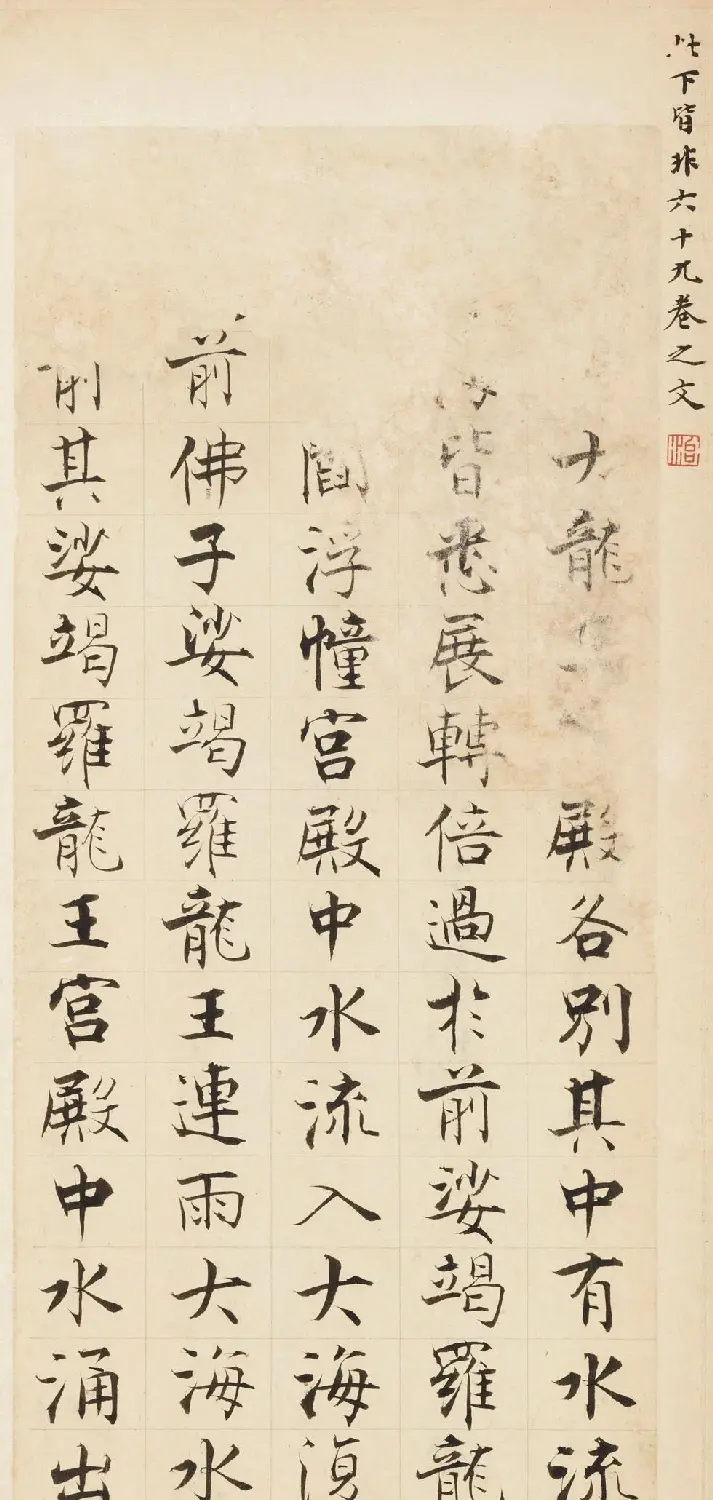 此下皆非六十九卷之文
大龍 殿各別其中有水流
皆悉展轉倍過於前娑竭羅龍
閻浮幢宮殿中水流入大海須
前佛子娑竭羅龍王連雨大海水
前其娑竭羅龍王宮殿中水涌出